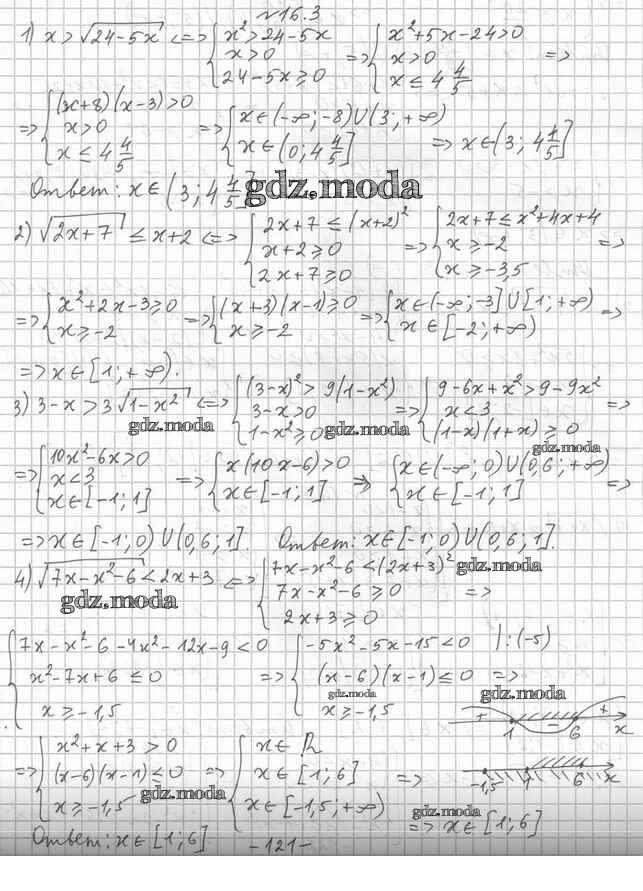 №16.3
1) x > √(24-5x) <=> { x² > 24-5x; x > 0; 24-5x ≥ 0 => { x²+5x-24 > 0; x > 0; x ≤ 4 4/5 =>
=> { (x+8)(x-3) > 0; x > 0; x ≤ 4 4/5 => { x ∈ (-∞; -8) ∪ (3; +∞); x ∈ (0; 4 4/5] => x ∈ (3; 4 4/5]
Ответ: x ∈ (3; 4 4/5] gdz.moda
2) √(2x+7) ≤ x+2 <=> { 2x+7 ≤ (x+2)²; x+2 ≥ 0; 2x+7 ≥ 0 => { 2x+7 ≤ x²+4x+4; x ≥ -2; x ≥ -3,5 =>
=> { x²+2x-3 ≥ 0; x ≥ -2 => { (x+3)(x-1) ≥ 0; x ≥ -2 => { x ∈ (-∞; -3] ∪ [1; +∞); x ∈ [-2; +∞) =>
=> x ∈ [1; +∞).
3) 3-x > 3√(1-x²) <=> { (3-x)² > 9(1-x²); 3-x > 0; 1-x² ≥ 0 => { 9-6x+x² > 9-9x²; x < 3; (1-x)(1+x) ≥ 0 =>
gdz.moda gdz.moda gdz.moda
=> { 10x²-6x > 0; x < 3; x ∈ [-1; 1] => { x(10x-6) > 0; x ∈ [-1; 1] => { x ∈ (-∞; 0) ∪ (0,6; +∞); x ∈ [-1; 1] =>
=> x ∈ [-1; 0) ∪ (0,6; 1]. Ответ: x ∈ [-1; 0) ∪ (0,6; 1].
4) √(7x-x²-6) < 2x+3 <=> { 7x-x²-6 < (2x+3)²; 7x-x²-6 ≥ 0; 2x+3 ≥ 0 =>
gdz.moda gdz.moda
{ 7x-x²-6-4x²-12x-9 < 0; x²-7x+6 ≤ 0; x ≥ -1,5 => { -5x²-5x-15 < 0 |:(-5); (x-6)(x-1) ≤ 0; x ≥ -1,5 =>
gdz.moda gdz.moda
+ 1 - 6 + x
=> { x²+x+3 > 0; (x-6)(x-1) ≤ 0; x ≥ -1,5 => { x ∈ R; x ∈ [1; 6]; x ∈ [-1,5; +∞) =>
-1,5 1 6 x
gdz.moda gdz.moda
=> x ∈ [1; 6]
Ответ: x ∈ [1; 6]
-121-